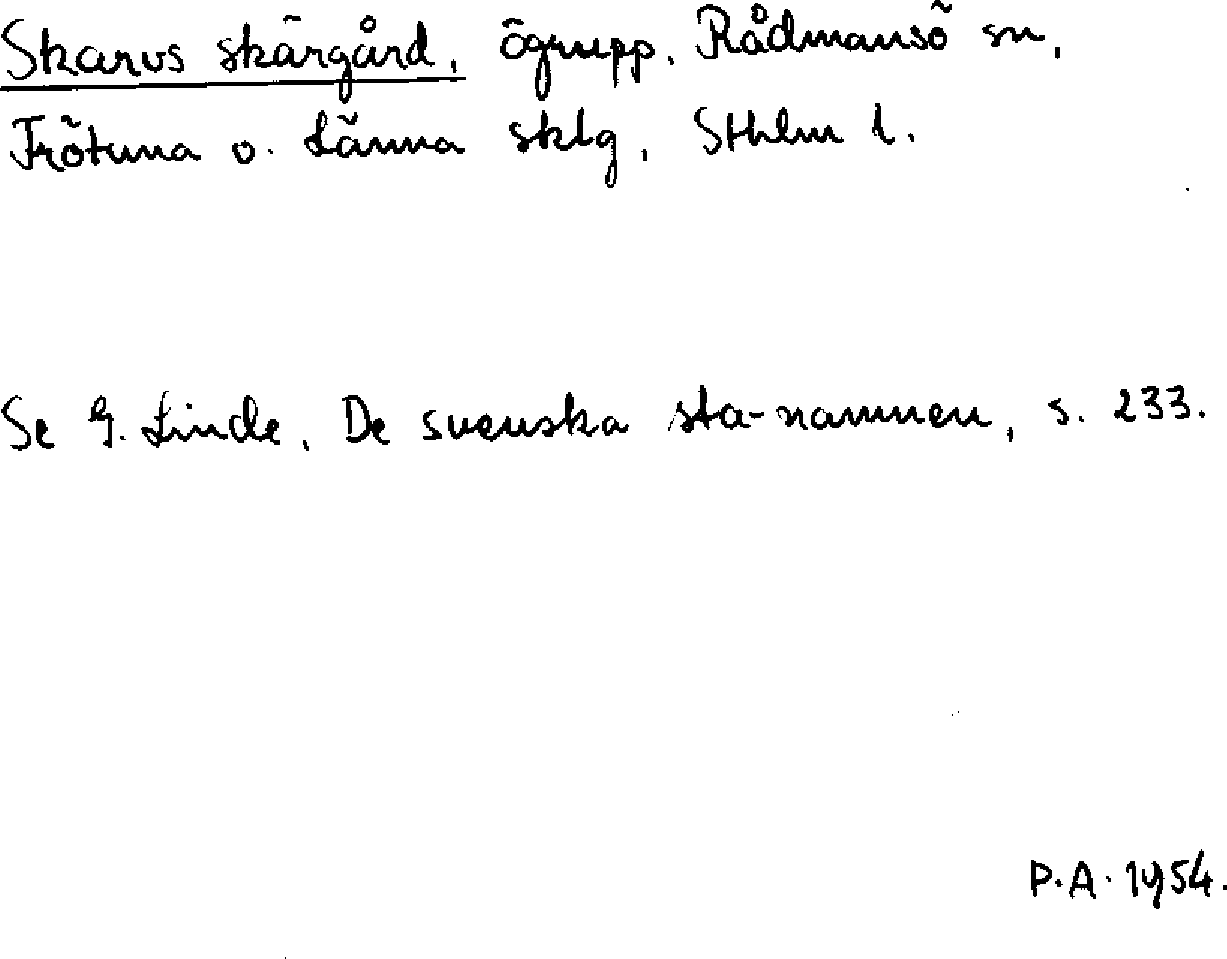 Skarvs skärgård, ögrupp, Rådmansö sn,
Frötuna o. Länna sklg, Sthlm l.
Se G. Linde, De svenska sta-namnen, s. 233.
P.A. 1954.